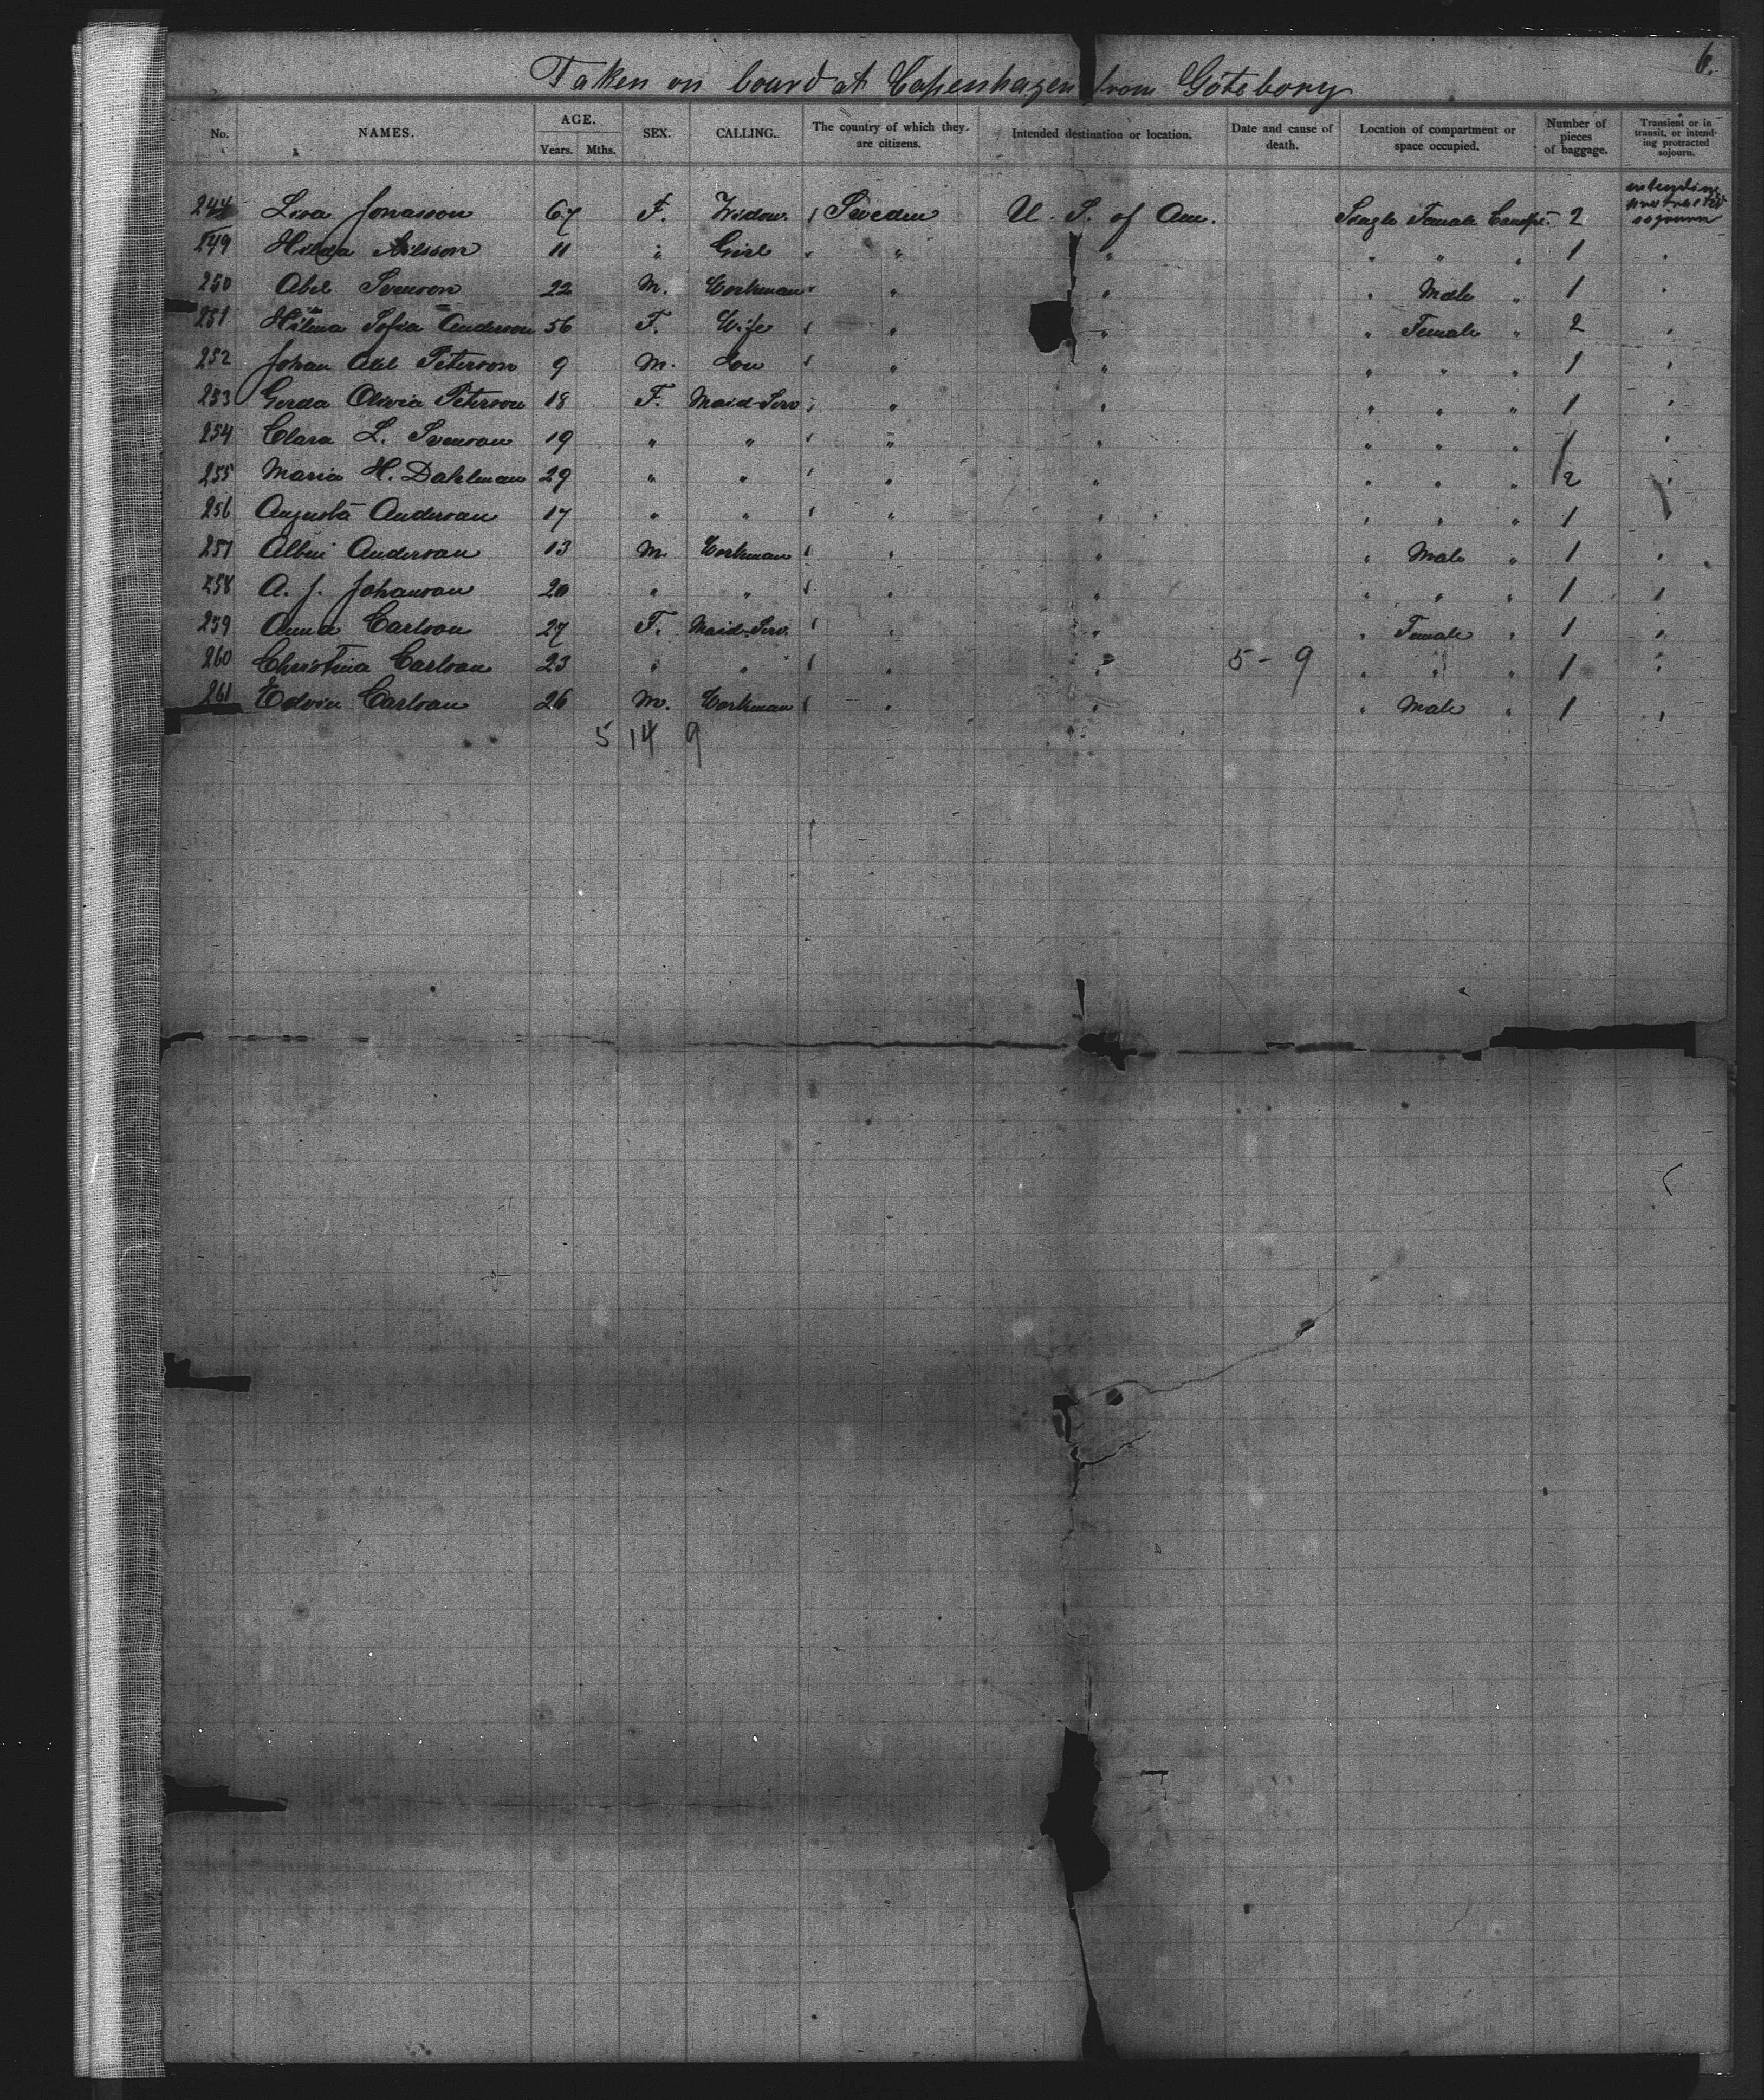 6.
Taken on board at Copenhagen from Göteborg
No. NAMES. AGE. Years. Mths. SEX. CALLING. The country of which they are citizens. Intended destination or location. Date and cause of death. Location of compartment or space occupied. Number of pieces of baggage. Transient or in transit, or intending protracted sojourn.
244 Lisa Jonasson 67 F. Widow Sweden U. S. of Am. Single Female Compt. 2 intending protracted sojourn
249 Hilda Nilsson 11 " Girl " " " " " 1 "
250 Abel Svenson 22 M. Workman " " " Male " 1 "
251 Hilma Sofia Anderson 56 F. Wife " " " Female " 2 "
252 Johan Abel Peterson 9 M. Son " " " " " 1 "
253 Gerda Olivia Peterson 18 F. Maid-Serv " " " " " 1 "
254 Clara L. Svenson 19 " " " " " " " 1 "
255 Maria H. Dahlman 29 " " " " " " " 2 "
256 Augusta Anderson 17 " " " " " " " 1
257 Albin Anderson 13 M. Workman " " " Male " 1 "
258 A. J. Johanson 20 " " " " " " " 1 "
259 Anna Carlson 27 F. Maid-Serv. " " " Female " 1 "
260 Christina Carlson 23 " " " " 5-9 " " " 1 "
261 Edvin Carlson 26 M. Workman " " " Male " 1 "
5 14 9